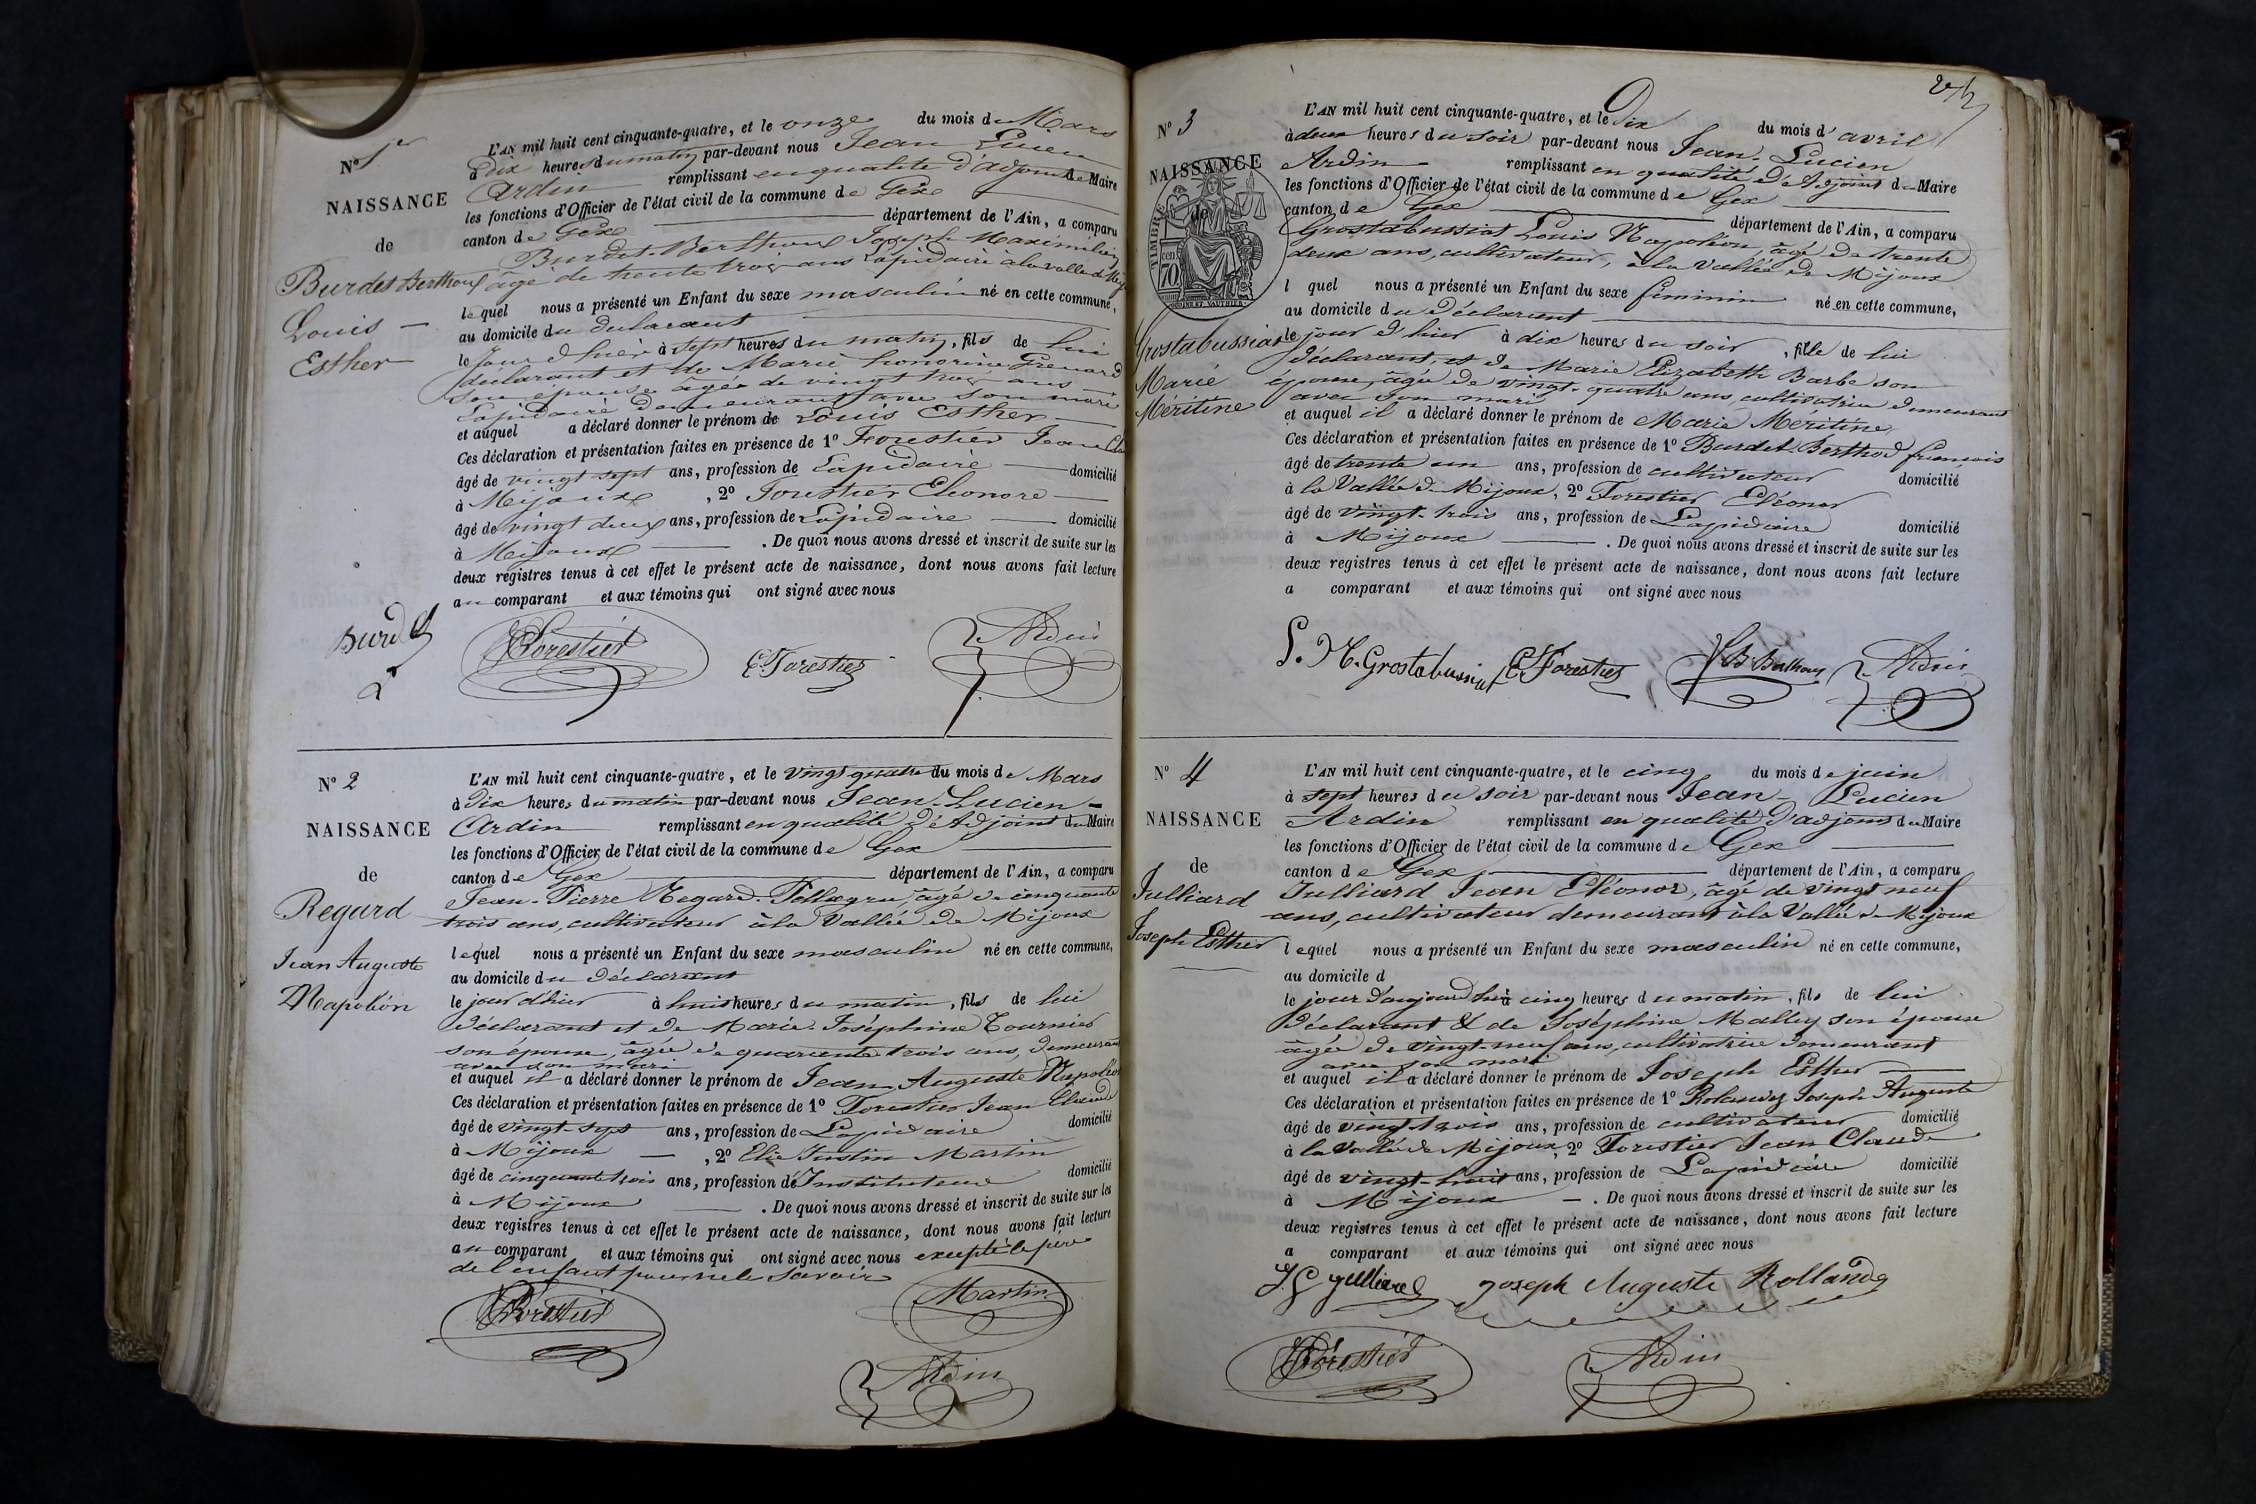 N° 1er
NAISSANCE
de
Burdet Berthoud
Louis
Esther
L'AN mil huit cent cinquante-quatre, et le onze du mois de Mars
à Dix heures du matin par-devant nous Jean Lucien
Ardin remplissant en qualité d'adjoint du Maire
les fonctions d'Officier de l'état civil de la commune de Gex
canton de Gex département de l'Ain, a comparu
Burdet-Berthoud Joseph Maximilien
âgé de trente trois ans Lapidaire à la vallée de
lequel nous a présenté un Enfant du sexe masculin né en cette commune,
au domicile du déclarant
le Jour d'hier à sept heures du matin, fils de lui
déclarant et de Marie honorine Grenard
son épouse âgée de vingt trois ans
Lapidaire demeurant avec son mari
et auquel a déclaré donner le prénom de Louis Esther
Ces déclaration et présentation faites en présence de 1° Forestier Jean
âgé de vingt sept ans, profession de Lapidaire domicilié
à Mijoux, 2° Forestier Eleonore
âgé de vingt deux ans, profession de Lapidaire domicilié
à Mijoux. De quoi nous avons dressé et inscrit de suite sur les
deux registres tenus à cet effet le présent acte de naissance, dont nous avons fait lecture
au comparant et aux témoins qui ont signé avec nous
Burdet Forestier E. Forestier Ardin
N° 2
NAISSANCE
de
Regard
Jean Auguste
Napoléon
L'AN mil huit cent cinquante-quatre, et le vingt quatre du mois de Mars
à Dix heures du matin par-devant nous Jean-Lucien
Ardin remplissant en qualité d'Adjoint du Maire
les fonctions d'Officier de l'état civil de la commune de Gex
canton de Gex département de l'Ain, a comparu
Jean-Pierre Regard-Pellagru, âgé de cinquante
trois ans, cultivateur à la Vallée de Mijoux
lequel nous a présenté un Enfant du sexe masculin né en cette commune,
au domicile du déclarant
le jour d'hier à huit heures du matin, fils de lui
déclarant et de Marie-Joséphine Tournier
son épouse, âgée de quarante trois ans, demeurant
avec son mari
et auquel il a déclaré donner le prénom de Jean Auguste Napoléon
Ces déclaration et présentation faites en présence de 1° Forestier Jean Claude
âgé de vingt-sept ans, profession de Lapidaire domicilié
à Mijoux, 2° Elie Justin Martin
âgé de cinquante trois ans, profession d'Instituteur domicilié
à Mijoux. De quoi nous avons dressé et inscrit de suite sur les
deux registres tenus à cet effet le présent acte de naissance, dont nous avons fait lecture
au comparant et aux témoins qui ont signé avec nous excepté le père
de l'enfant pour ne le savoir
Forestier Martin
Ardin
N° 3
NAISSANCE
de
TIMBRE
70 cen
Grostabussiat
Marie
Méritine
L'AN mil huit cent cinquante-quatre, et le Dix du mois d'avril
à deux heures du soir par-devant nous Jean-Lucien
Ardin remplissant en qualité d'Adjoint du Maire
les fonctions d'Officier de l'état civil de la commune de Gex
canton de Gex département de l'Ain, a comparu
Grostabussiat Louis Napoléon, âgé de trente
deux ans, cultivateur, à la Vallée de Mijoux
l quel nous a présenté un Enfant du sexe féminin né en cette commune,
au domicile du Déclarant
le jour d'hier à dix heures du soir, fille de lui
déclarant, et de Marie Elizabeth Barbe son
épouse, âgée de vingt-quatre ans, cultivatrice demeurant
avec son mari
et auquel il a déclaré donner le prénom de Marie Méritine
Ces déclaration et présentation faites en présence de 1° Burdet-Berthod françois
âgé de trente un ans, profession de cultivateur domicilié
à la Vallée de Mijoux, 2° Forestier Eléonor
âgé de vingt-trois ans, profession de Lapidaire domicilié
à Mijoux. De quoi nous avons dressé et inscrit de suite sur les
deux registres tenus à cet effet le présent acte de naissance, dont nous avons fait lecture
a comparant et aux témoins qui ont signé avec nous
L. N. Grostabussiat E. Forestier B. Berthoud Ardin
N° 4
NAISSANCE
de
Julliard
Joseph Esther
L'AN mil huit cent cinquante-quatre, et le cinq du mois de juin
à sept heures du soir par-devant nous Jean-Lucien
Ardin remplissant en qualité d'adjoint du Maire
les fonctions d'Officier de l'état civil de la commune de Gex
canton de Gex département de l'Ain, a comparu
Julliard Jean Eléonor, âgé de vingt neuf
ans, cultivateur demeurant à la Vallée de Mijoux
lequel nous a présenté un Enfant du sexe masculin né en cette commune,
au domicile d
le jour d'aujourd'hui à cinq heures du matin, fils de lui
déclarant & de Joséphine Malley son épouse
âgée de vingt-neuf ans, cultivatrice demeurant
avec son mari
et auquel il a déclaré donner le prénom de Joseph Esther
Ces déclaration et présentation faites en présence de 1° Rolandez Joseph Auguste
âgé de vingt trois ans, profession de cultivateur domicilié
à la Vallée de Mijoux, 2° Forestier Jean Claude
âgé de vingt-huit ans, profession de Lapidaire domicilié
à Mijoux. De quoi nous avons dressé et inscrit de suite sur les
deux registres tenus à cet effet le présent acte de naissance, dont nous avons fait lecture
a comparant et aux témoins qui ont signé avec nous
Julliard Joseph Auguste Rolland
Forestier Ardin